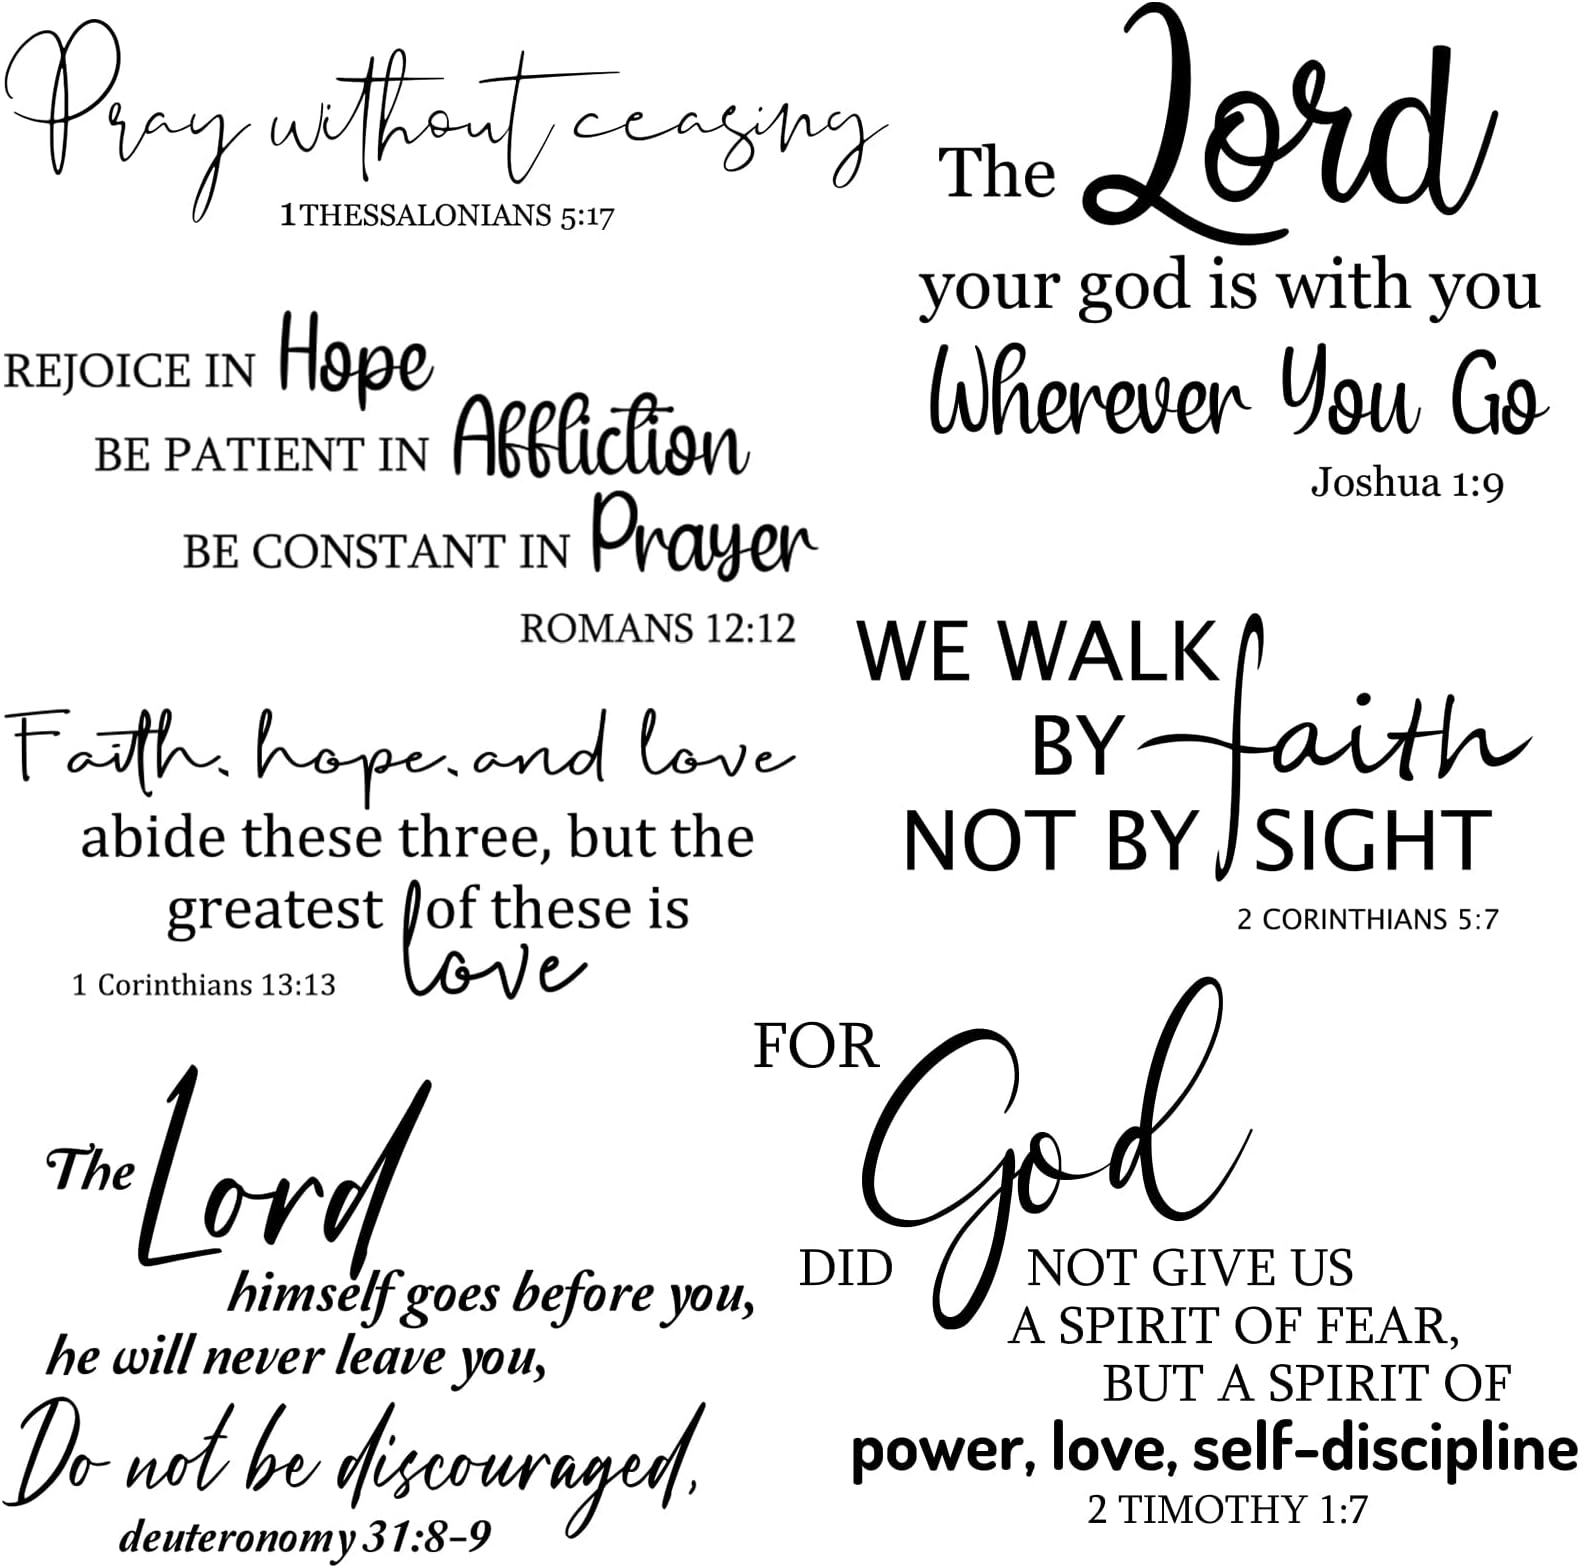 Pray without ceasing
1 THESSALONIANS 5:17
The Lord
your god is with you
Wherever You Go
Joshua 1:9
REJOICE IN Hope
BE PATIENT IN Affliction
BE CONSTANT IN Prayer
ROMANS 12:12
WE WALK
BY faith
NOT BY SIGHT
2 CORINTHIANS 5:7
Faith, hope, and love
abide these three, but the
greatest of these is
love
1 Corinthians 13:13
FOR God
DID NOT GIVE US
A SPIRIT OF FEAR,
BUT A SPIRIT OF
power, love, self-discipline
2 TIMOTHY 1:7
The Lord
himself goes before you,
he will never leave you,
Do not be discouraged,
deuteronomy 31:8-9